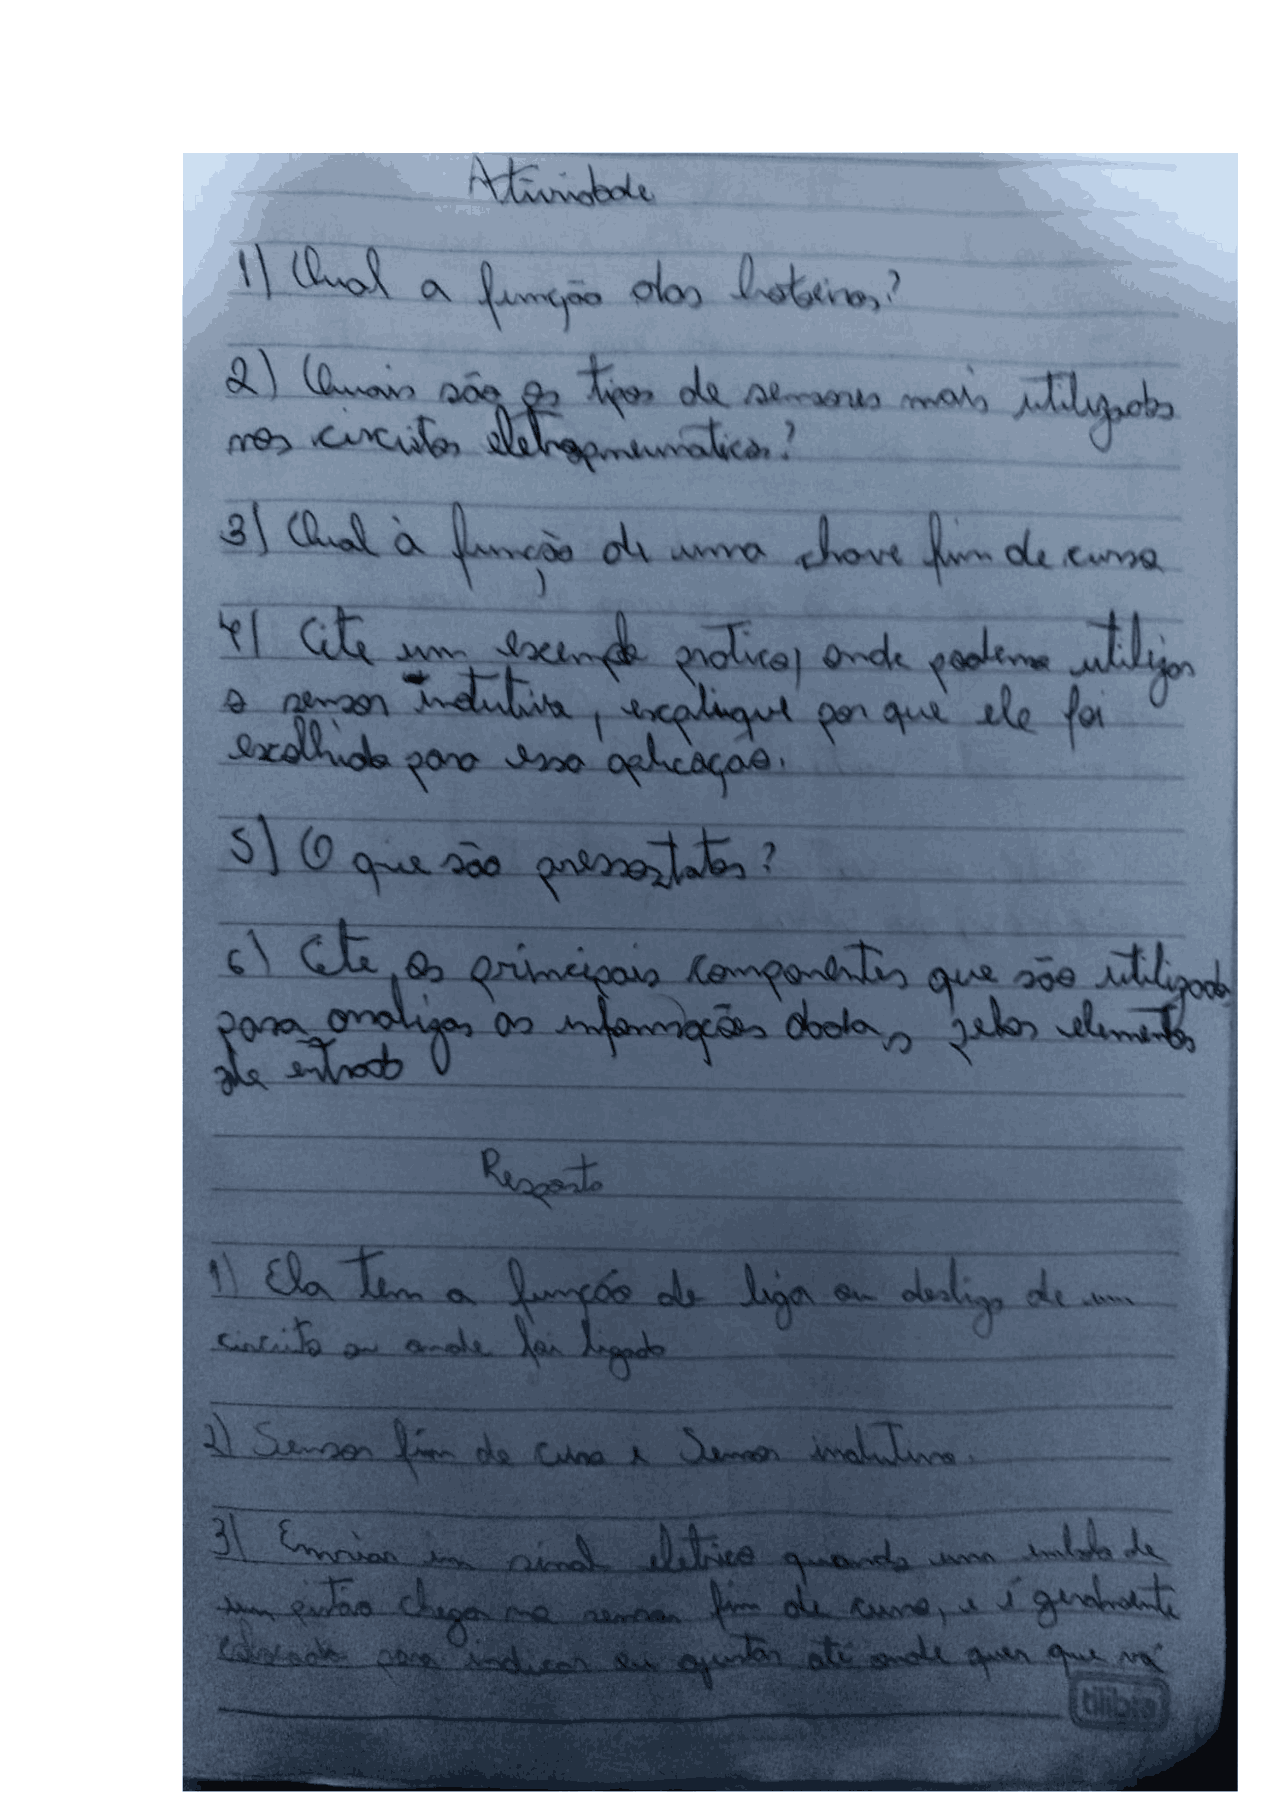 Atividade
1) Qual a função das botoeiras?
2) Quais são os tipos de sensores mais utilizados
nos circuitos eletropneumaticos?
3) Qual à função de uma chave fim de curso
4) Cite um exemplo pratico, onde podemos utilizar
o sensor indutivo, explique por que ele foi
escolhido para essa aplicação.
5) O que são pressostatos?
6) Cite os principais componentes que são utilizados
para analizar as informações dadas pelos elementos
de entrada
Resposta
1) Ela tem a função de liga ou desliga de um
circuito ou onde foi ligado
2) Sensor fim de curso e Sensor indutivo.
3) Enviar um sinal eletrico quando uma embolo de
um pistão chega no sensor fim de curso, e é geralmente
colocado para indicar ou ajustar até onde quer que vá
tilibra